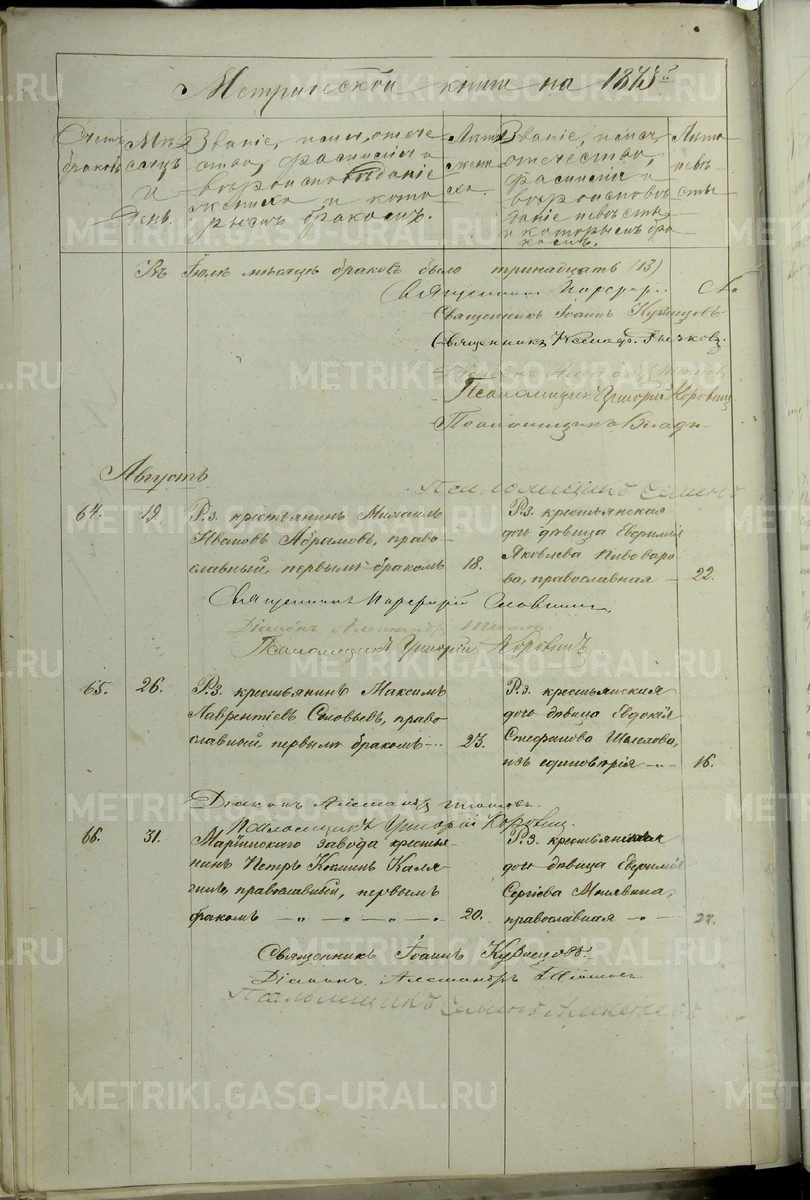 Метрической книги на 1875й
Счетъ браковъ
Мѣсяцъ и день.
Званіе, имя, отечество, фамилія и вѣроисповѣданіе жениха и которымъ бракомъ.
Лѣта жениха.
Званіе, имя, отечество, фамилія и вѣроисповѣданіе невѣсты и которымъ бракомъ.
Лѣта невѣсты
Въ Іюлѣ мѣсяцѣ браковъ было тринадцать (13)
Священникъ Порфирій
Священникъ Іоаннъ Кузнецовъ
Священникъ
Псаломщикъ Григорій Коровинъ
Псаломщикъ
Августъ
Псаломщикъ Семенъ
64.
19.
Р.з. крестьянинъ Михаилъ
Ивановъ Абрамовъ, право-
славный, первымъ бракомъ
18.
Р.з. крестьянская
дочь дѣвица Евфимія
Яковлева Пивоваро-
ва, православная
22.
Священникъ Порфирій Словцовъ
Діаконъ Александръ
Псаломщикъ Григорій Коровинъ
65.
26.
Р.з. крестьянинъ Максимъ
Лаврентіевъ Соловьевъ, право-
славный, первымъ бракомъ
23.
Р.з. крестьянская
дочь дѣвица Евдокія
Стефанова Шелехова,
изъ единовѣрія
16.
Діаконъ Александръ
Псаломщикъ Григорій Коровинъ
66.
31.
Маріинскаго завода крестья-
нинъ Петръ Козминъ Каля-
гинъ православный, первымъ
бракомъ
20.
Р.з. крестьянская
дочь дѣвица Евфимія
Сергіева
православная
22.
Священникъ Іоаннъ Кузнецовъ
Діаконъ Александръ
Псаломщикъ Семенъ
METRIKI.GASO-URAL.RU